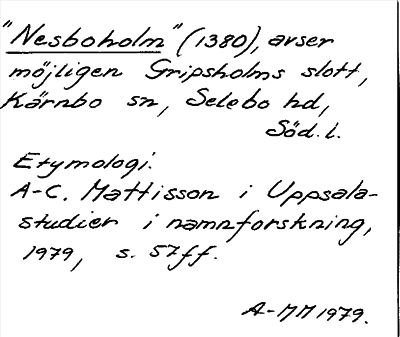 "Nesboholm" (1380), avser
möjligen Gripsholms slott,
Kärnbo sn, Selebo hd,
Söd. l.
Etymologi.
A-C. Mattisson i Uppsala-
studier i namnforskning,
1979, s. 57ff.
A-MM 1979.